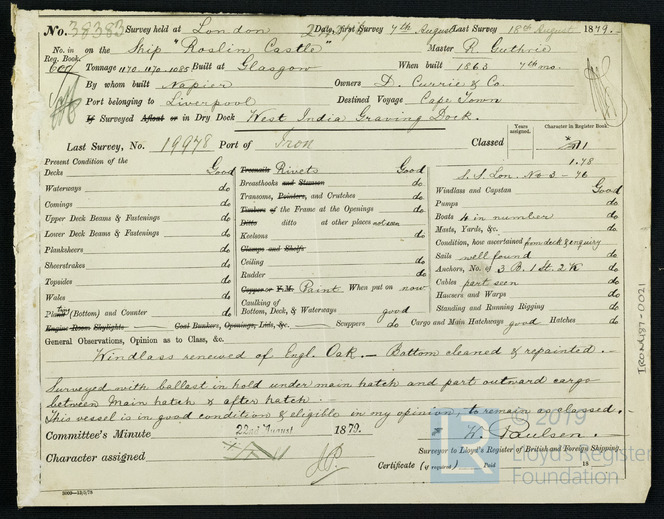 No. 38383 Survey held at London Date, first Survey 7th August Last Survey 18th August 1879.
No. in Reg. Book. on the Ship "Roslin Castle" Master R. Guthrie
600 Tonnage 1170. 1170. 1085 Built at Glasgow When built 1863 7th mo.
By whom built Napier Owners D. Currie & Co.
Port belonging to Liverpool Destined Voyage Cape Town
If Surveyed Afloat or in Dry Dock West India Graving Dock.
Last Survey, No. 19978 Port of Iron Classed
Years assigned. Character in Register Book.
1.78
S.S. Lon. No 3 - 76
Present Condition of the
Decks Good
Waterways do
Comings do
Upper Deck Beams & Fastenings do
Lower Deck Beams & Fastenings do
Planksheers do
Sheerstrakes do
Topsides do
Wales do
Plating (Bottom) and Counter do
Engine Room Skylights Coal Bunkers, Openings, Lids, &c. Scuppers do Cargo and Main Hatchways good Hatches do
Treenails Rivets Good
Breasthooks and Stemson do
Transoms, Pointers, and Crutches do
Timbers of the Frame at the Openings do
Ditto ditto at other places not seen
Keelsons do
Clamps and Shelfs
Ceiling do
Rudder do
Copper or Y.M. Paint When put on now
Caulking of Bottom, Deck, & Waterways good
Windlass and Capstan Good
Pumps do
Boats 4 in number do
Masts, Yards, &c. do
Condition, how ascertained from deck & enquiry
Sails well found do
Anchors, No. of 3 B. 1 St. 2 K do
Cables part seen do
Hawsers and Warps do
Standing and Running Rigging do
General Observations, Opinion as to Class, &c.
Windlass renewed of Engl. Oak. - Bottom cleaned & repainted. -
Surveyed with ballast in hold under main hatch and part outward cargo
between Main hatch & after hatch. -
This vessel is in good condition & eligible in my opinion, to remain as classed. -
Committee's Minute 22nd August 1879.
Character assigned
W. Paulsen.
Surveyor to Lloyd's Register of British and Foreign Shipping.
Certificate (if required) Paid 18
3000-13/2/78
IRON187-0021
© 2019
LR
Lloyd's Register
Foundation